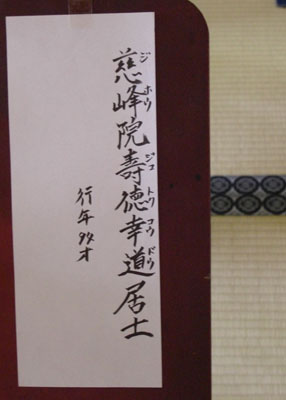 慈峰院壽徳幸道居士
ジホウジュトクコウドウ
行年九九才